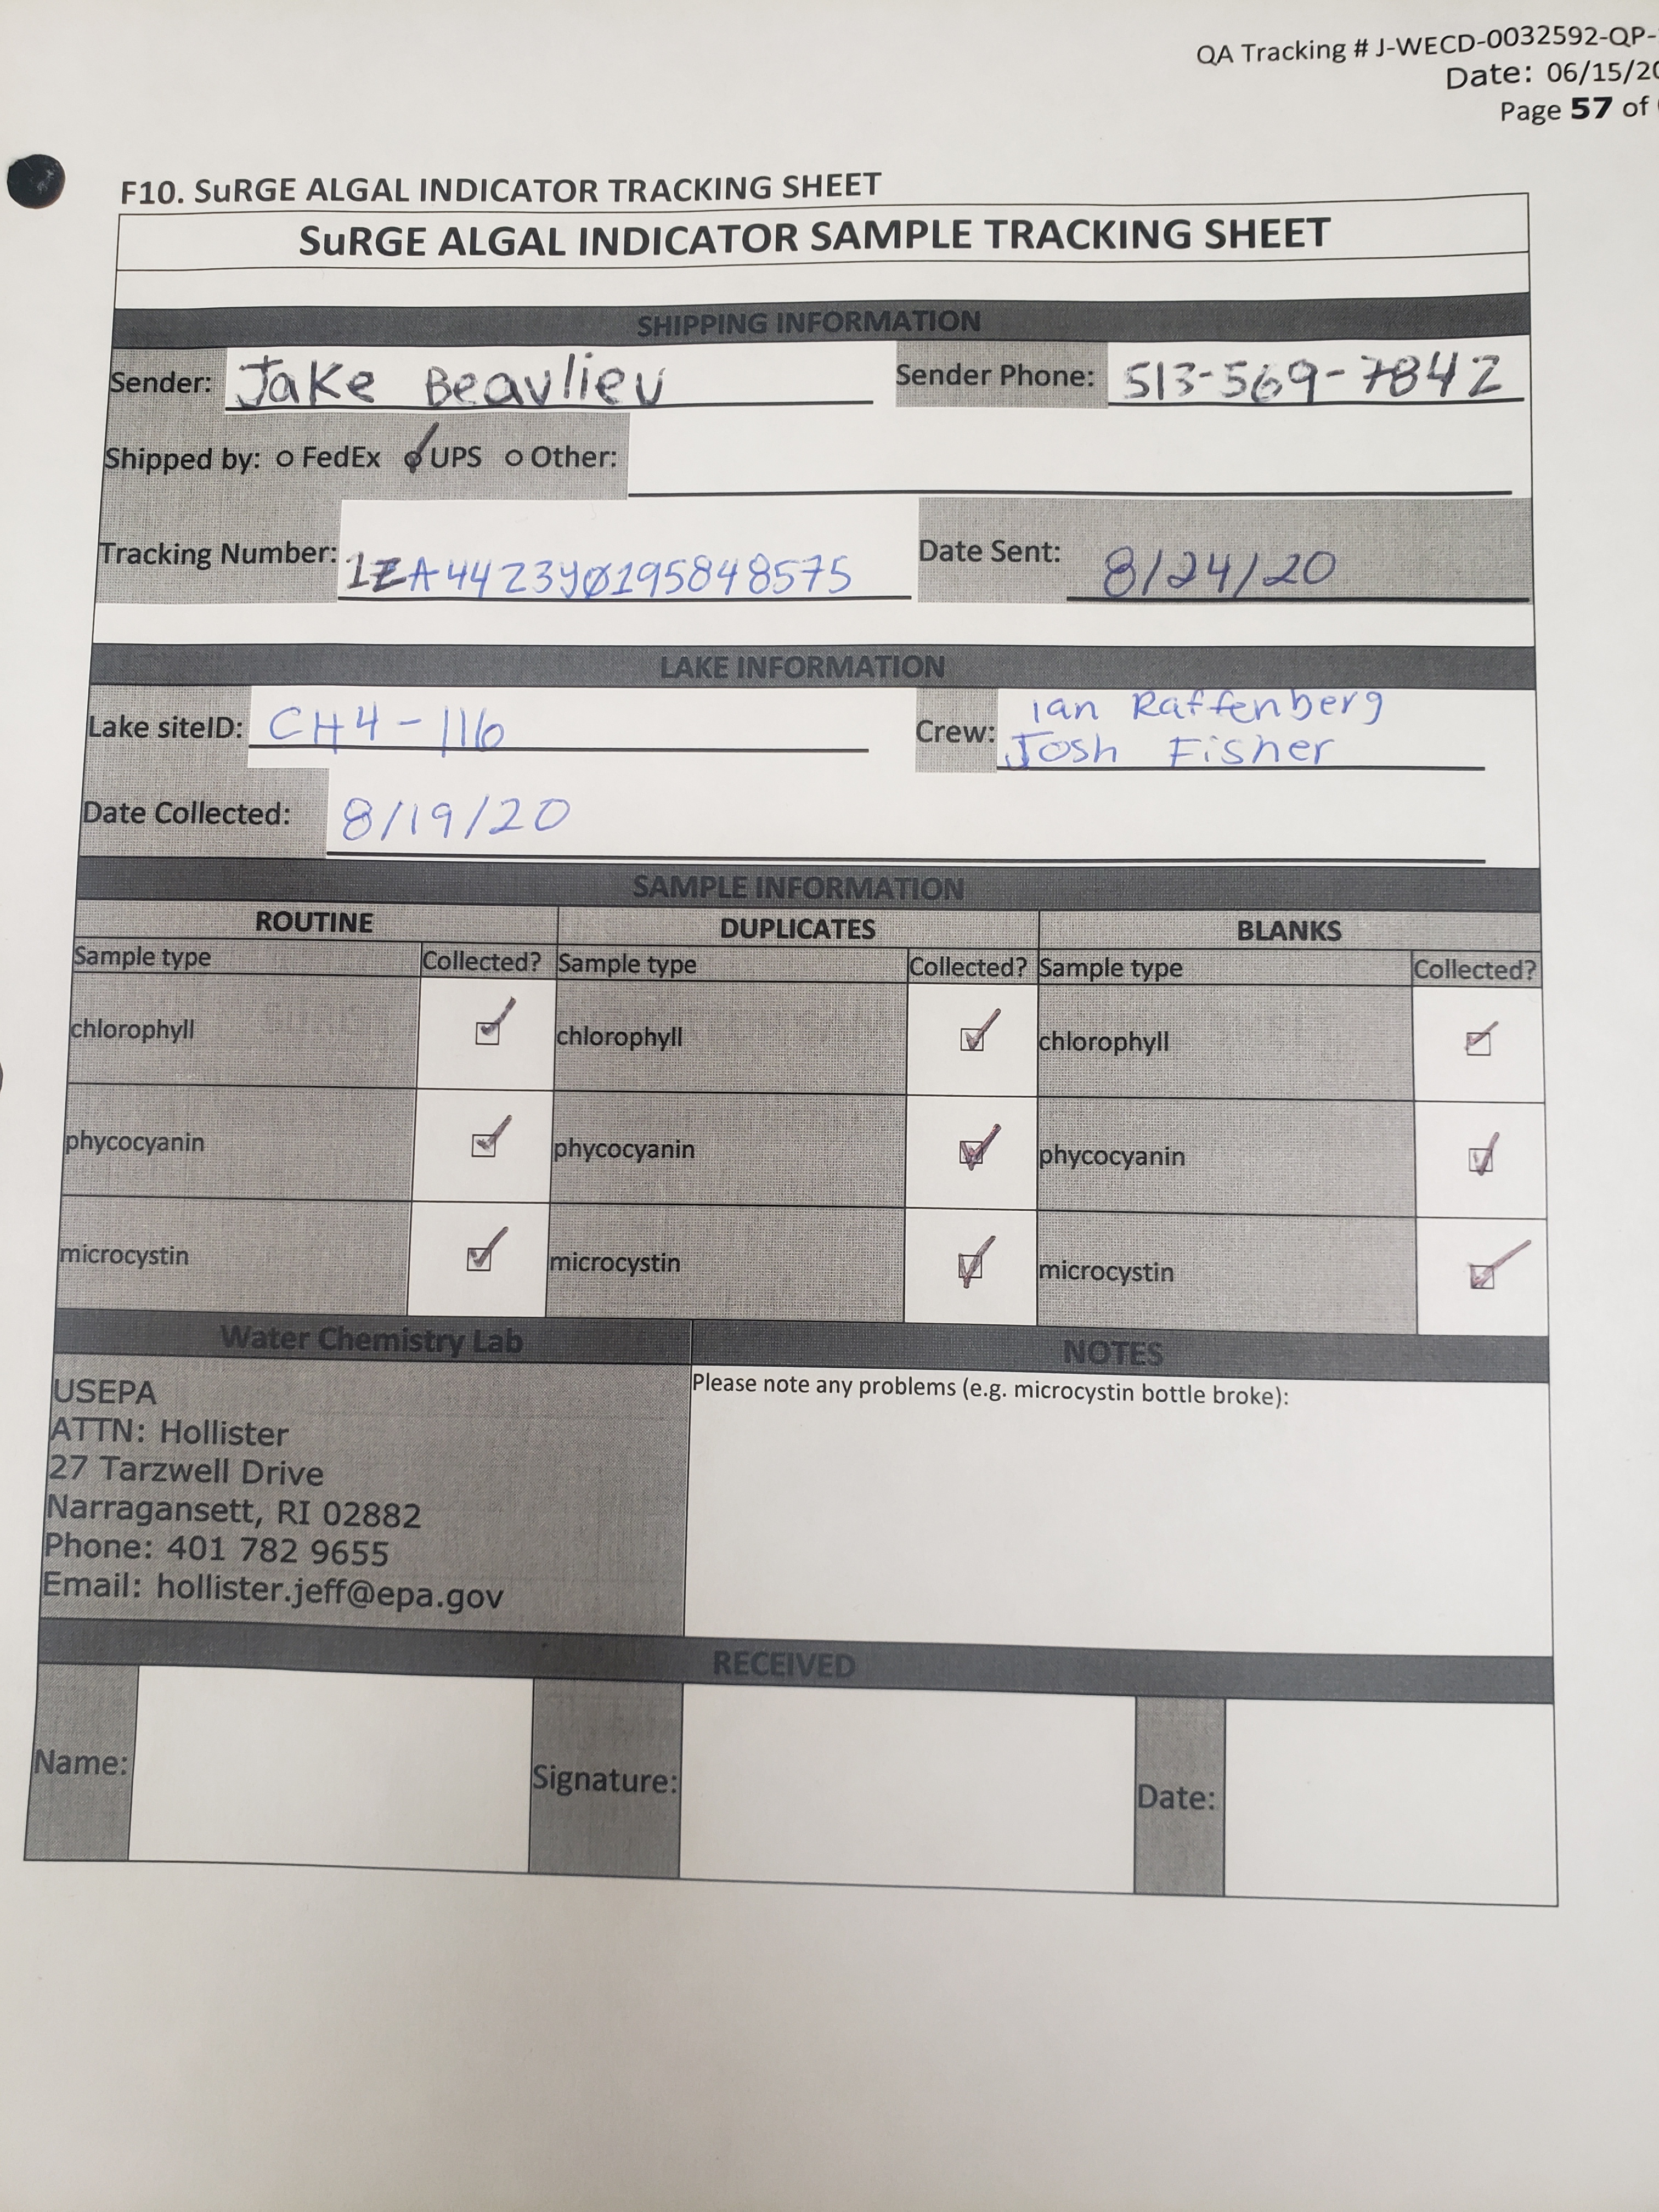 QA Tracking # J-WECD-0032592-QP-
Date: 06/15/20
Page 57 of
F10. SuRGE ALGAL INDICATOR TRACKING SHEET
SuRGE ALGAL INDICATOR SAMPLE TRACKING SHEET
SHIPPING INFORMATION
Sender: Jake Beaulieu Sender Phone: 513-569-7842
Shipped by: o FedEx o UPS o Other:
Tracking Number: Date Sent: 8/24/20
LAKE INFORMATION
Lake siteID: CH4-116 Crew: Ian Raffenberg
Josh Fisher
Date Collected: 8/19/20
SAMPLE INFORMATION
ROUTINE DUPLICATES BLANKS
Sample type Collected? Sample type Collected? Sample type Collected?
chlorophyll ☑ chlorophyll ☑ chlorophyll ☑
phycocyanin ☑ phycocyanin ☑ phycocyanin ☑
microcystin ☑ microcystin ☑ microcystin ☑
Water Chemistry Lab NOTES
USEPA
ATTN: Hollister
27 Tarzwell Drive
Narragansett, RI 02882
Phone: 401 782 9655
Email: hollister.jeff@epa.gov
Please note any problems (e.g. microcystin bottle broke):
RECEIVED
Name: Signature: Date: